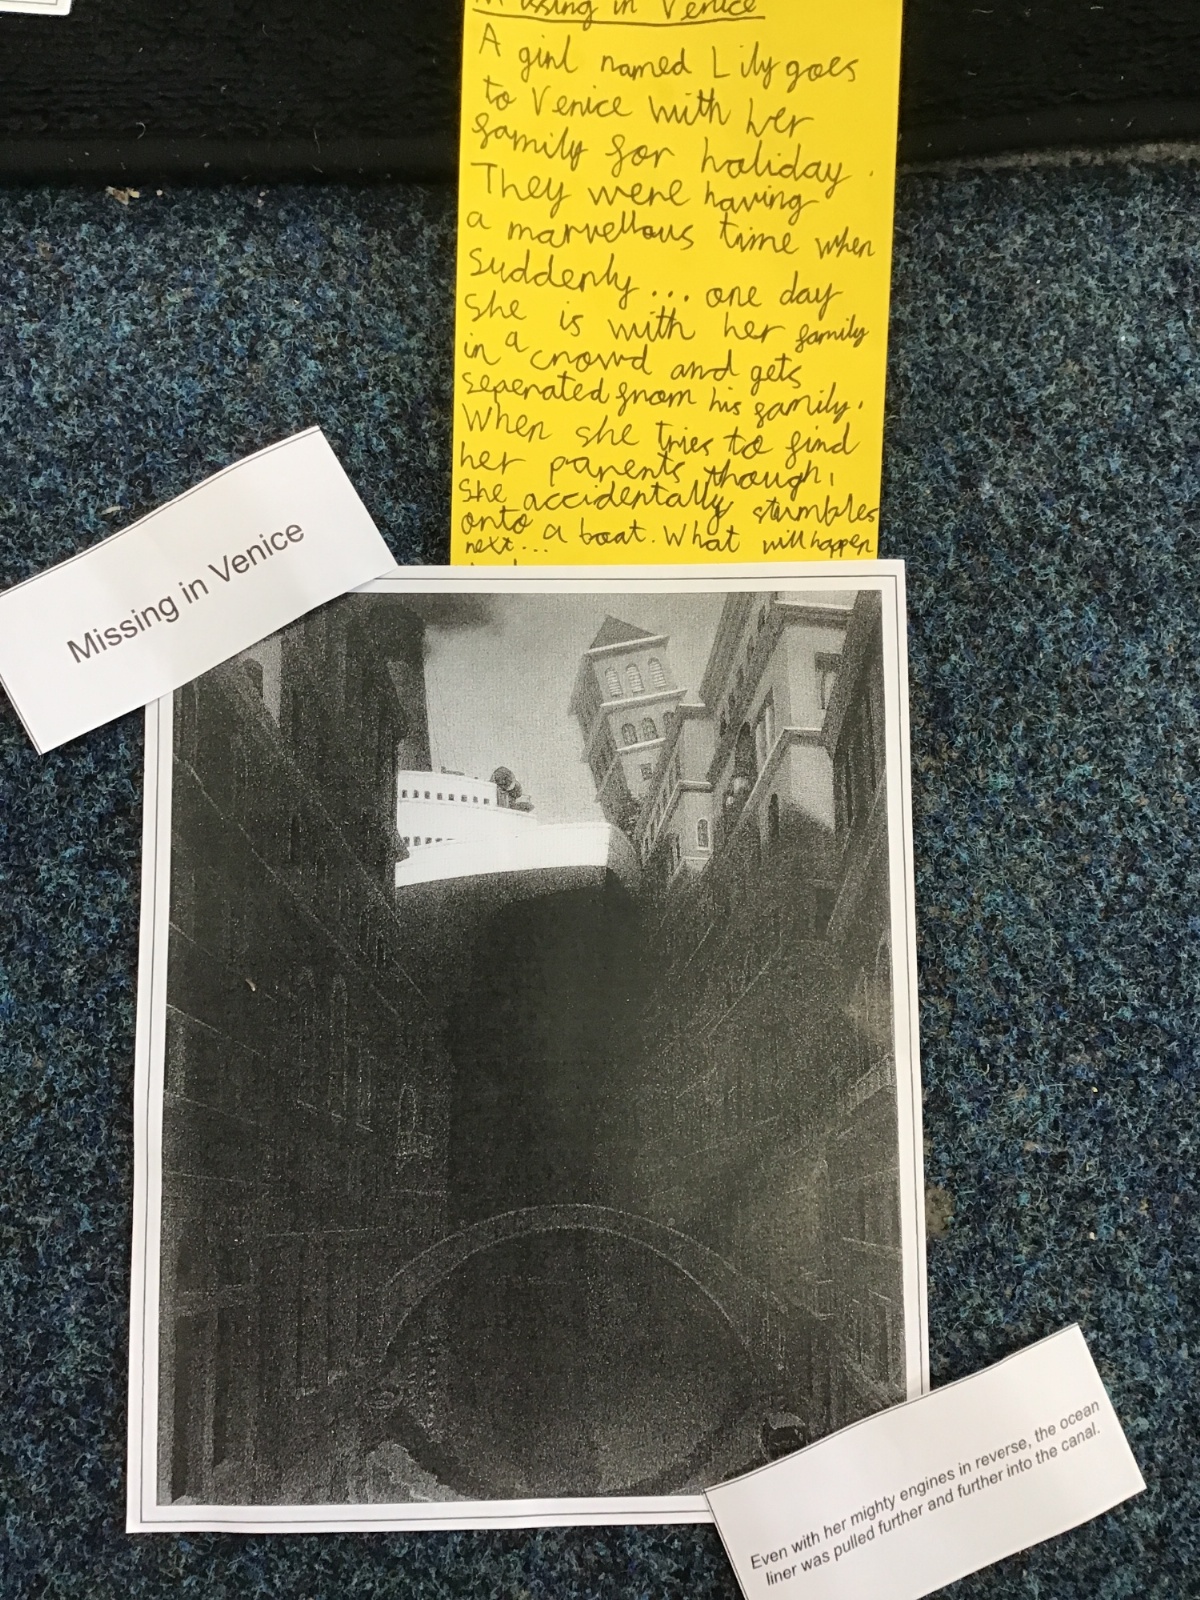 Missing in Venice
A girl named Lily goes
to Venice with her
family for holiday.
They were having
a marvellous time when
suddenly... one day
she is with her family
in a crowd and gets
seperated from his family.
When she tries to find
her parents though,
she accidentally stumbles
onto a boat. What will happen
next...
Missing in Venice
Even with her mighty engines in reverse, the ocean
liner was pulled further and further into the canal.